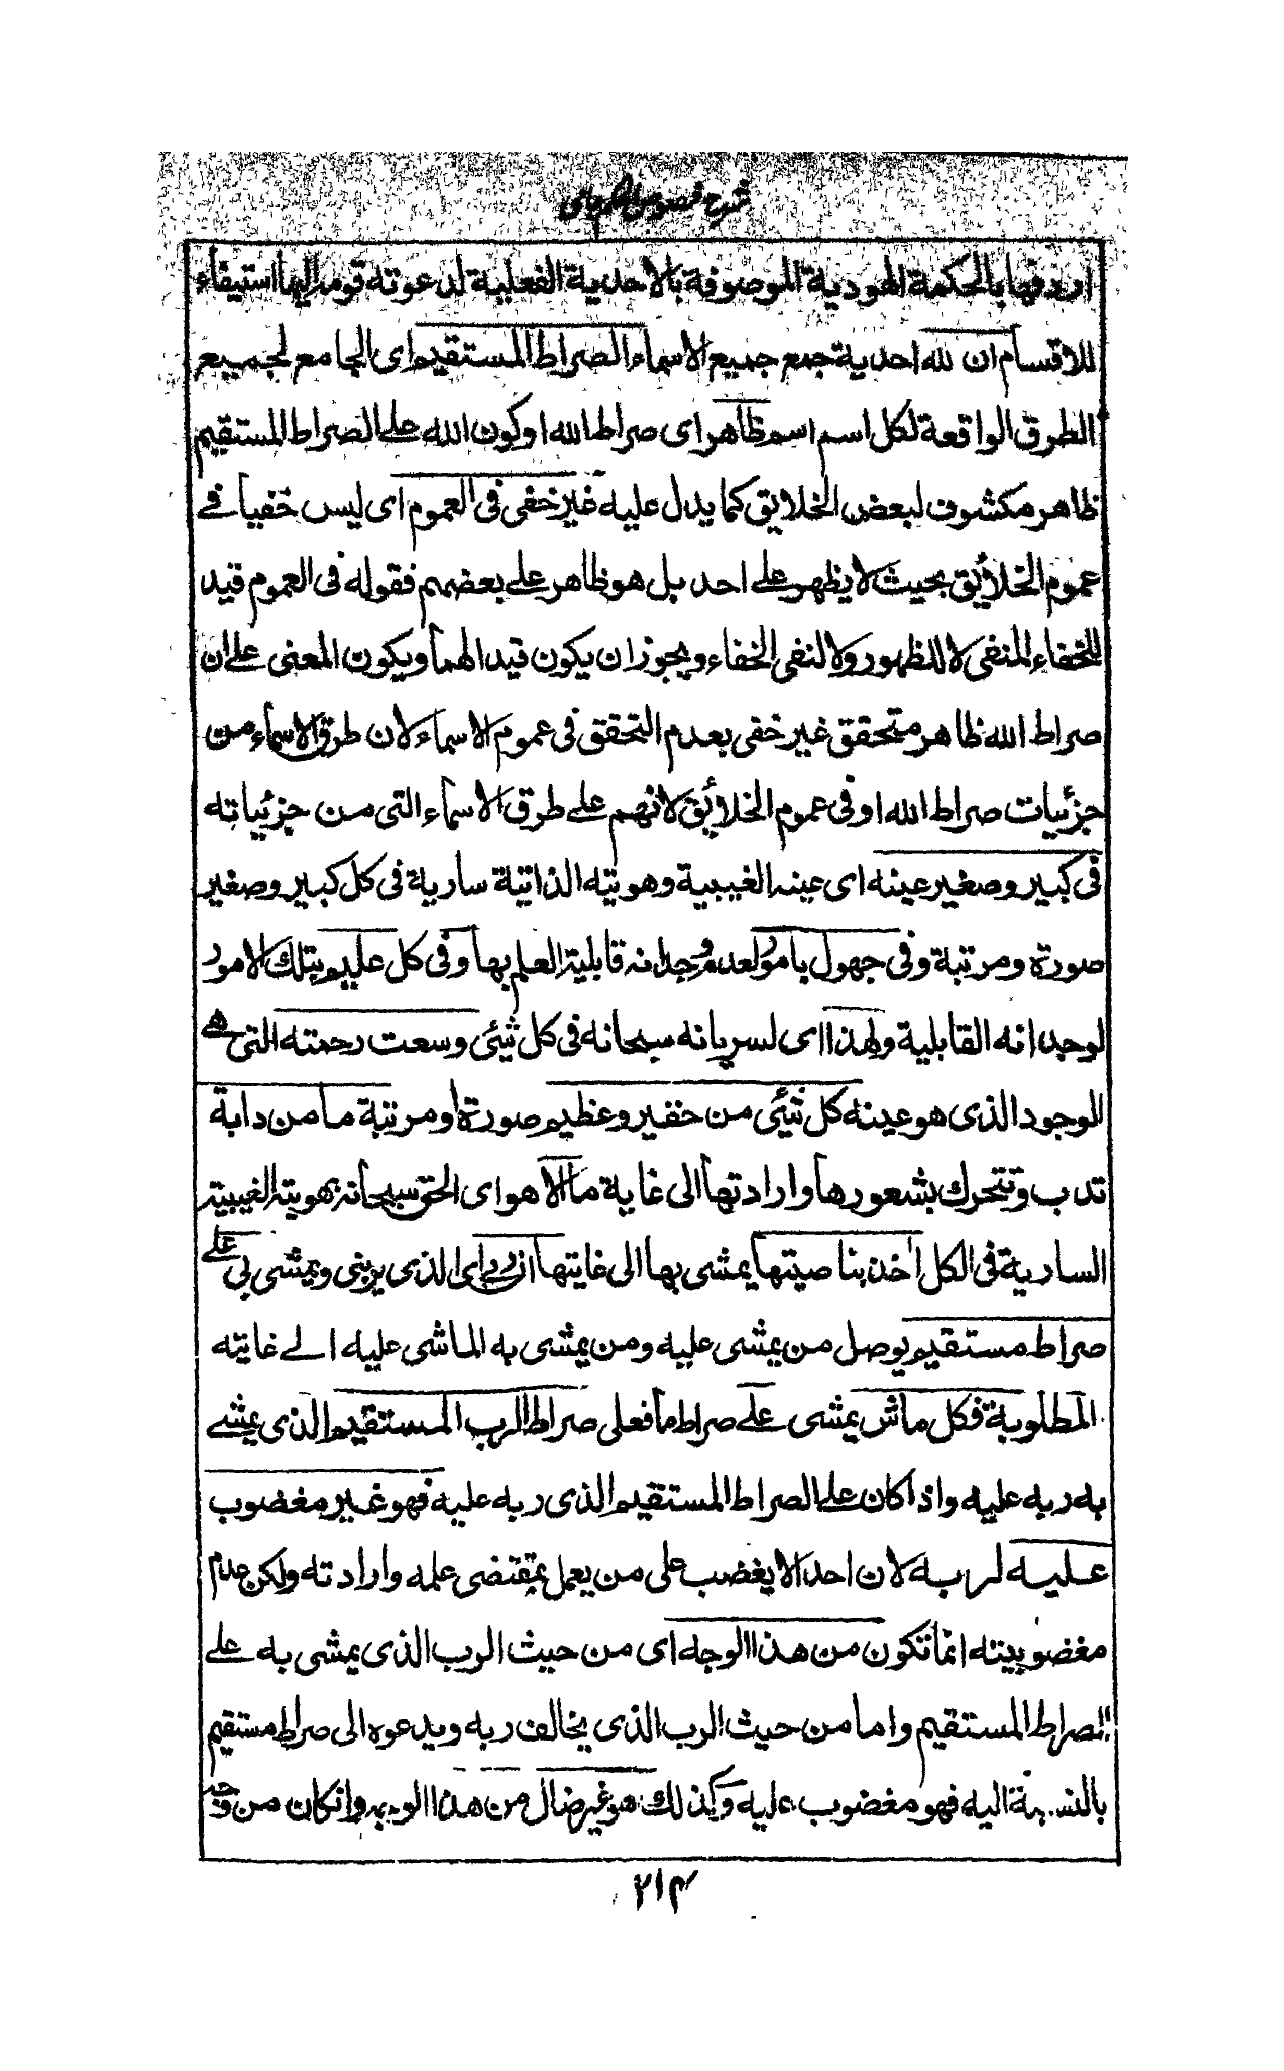 شرح فصوص الحكم جامی
اردفها بالحكمة الهودية الموصوفة بالاحدية الفعلية لدعوته قومه اليها استيفاء
للاقسام ان لله احدية جمع جميع الاسماء الصراط المستقيم اى الجامع لجميع
الطرق الواقعة لكل اسم اسم ظاهر اى صراط الله او كون الله على الصراط المستقيم
ظاهر مكشوف لبعض الخلايق كما يدل عليه غير خفى فى العموم اى ليس خفيا فے
عموم الخلائق بحيث لا يظهر على احد بل هو ظاهر على بعضهم فقوله فى العموم قيد
للخفاء المنفى لا للظهور ولا لنفى الخفاء ويجوز ان يكون قيدا لهما ويكون المعنى على ان
صراط الله ظاهر متحقق غير خفى بعدم التحقق فى عموم الاسماء لان طرق الاسماء من
جزئيات صراط الله او فى عموم الخلائق لانهم على طرق الاسماء التى من جزئياته
فى كبير وصغير عينه اى عينه الغيبية وهويته الذاتية سارية فى كل كبير وصغير
صورة ومرتبة وفى جهول بامور لعدم وجدانه قابلية العلم بها وفى كل عليم بتلك الامور
لوجدانه القابلية ولهذا اى لسريانه سبحانه فى كل شئى وسعت رحمته التى هى
الوجود الذى هو عينه كل شئى من حقير وعظيم صورة او مرتبة ما من دابة
تدب وتتحرك بشعورها وارادتها الى غاية ما الا هو اى الحق سبحانه بهويته الغيبية
السارية فى الكل اخذ بناصيتها يمشى بها الى غايتها ان ربى اى الذى يربنى ويمشى بى على
صراط مستقيم يوصل من يمشى عليه ومن يمشى به الماشى عليه الے غايته
المطلوبة فكل ماش يمشى على صراط ما فعلى صراط الرب المستقيم الذى يمشے
به ربه عليه واذا كان على الصراط المستقيم الذى ربه عليه فهو غير مغضوب
عليه لربه لان احدا لا يغضب على من يعمل بمقتضى علمه وارادته ولكن عدم
مغضوبيته انما تكون من هذا الوجه اى من حيث الرب الذى يمشى به على
الصراط المستقيم واما من حيث الرب الذى يخالف ربه ويدعوه الى صراط مستقيم
بالنسبة اليه فهو مغضوب عليه وكذلك هو غير ضال من هذا الوجه وان كان من وجه
٢١٤